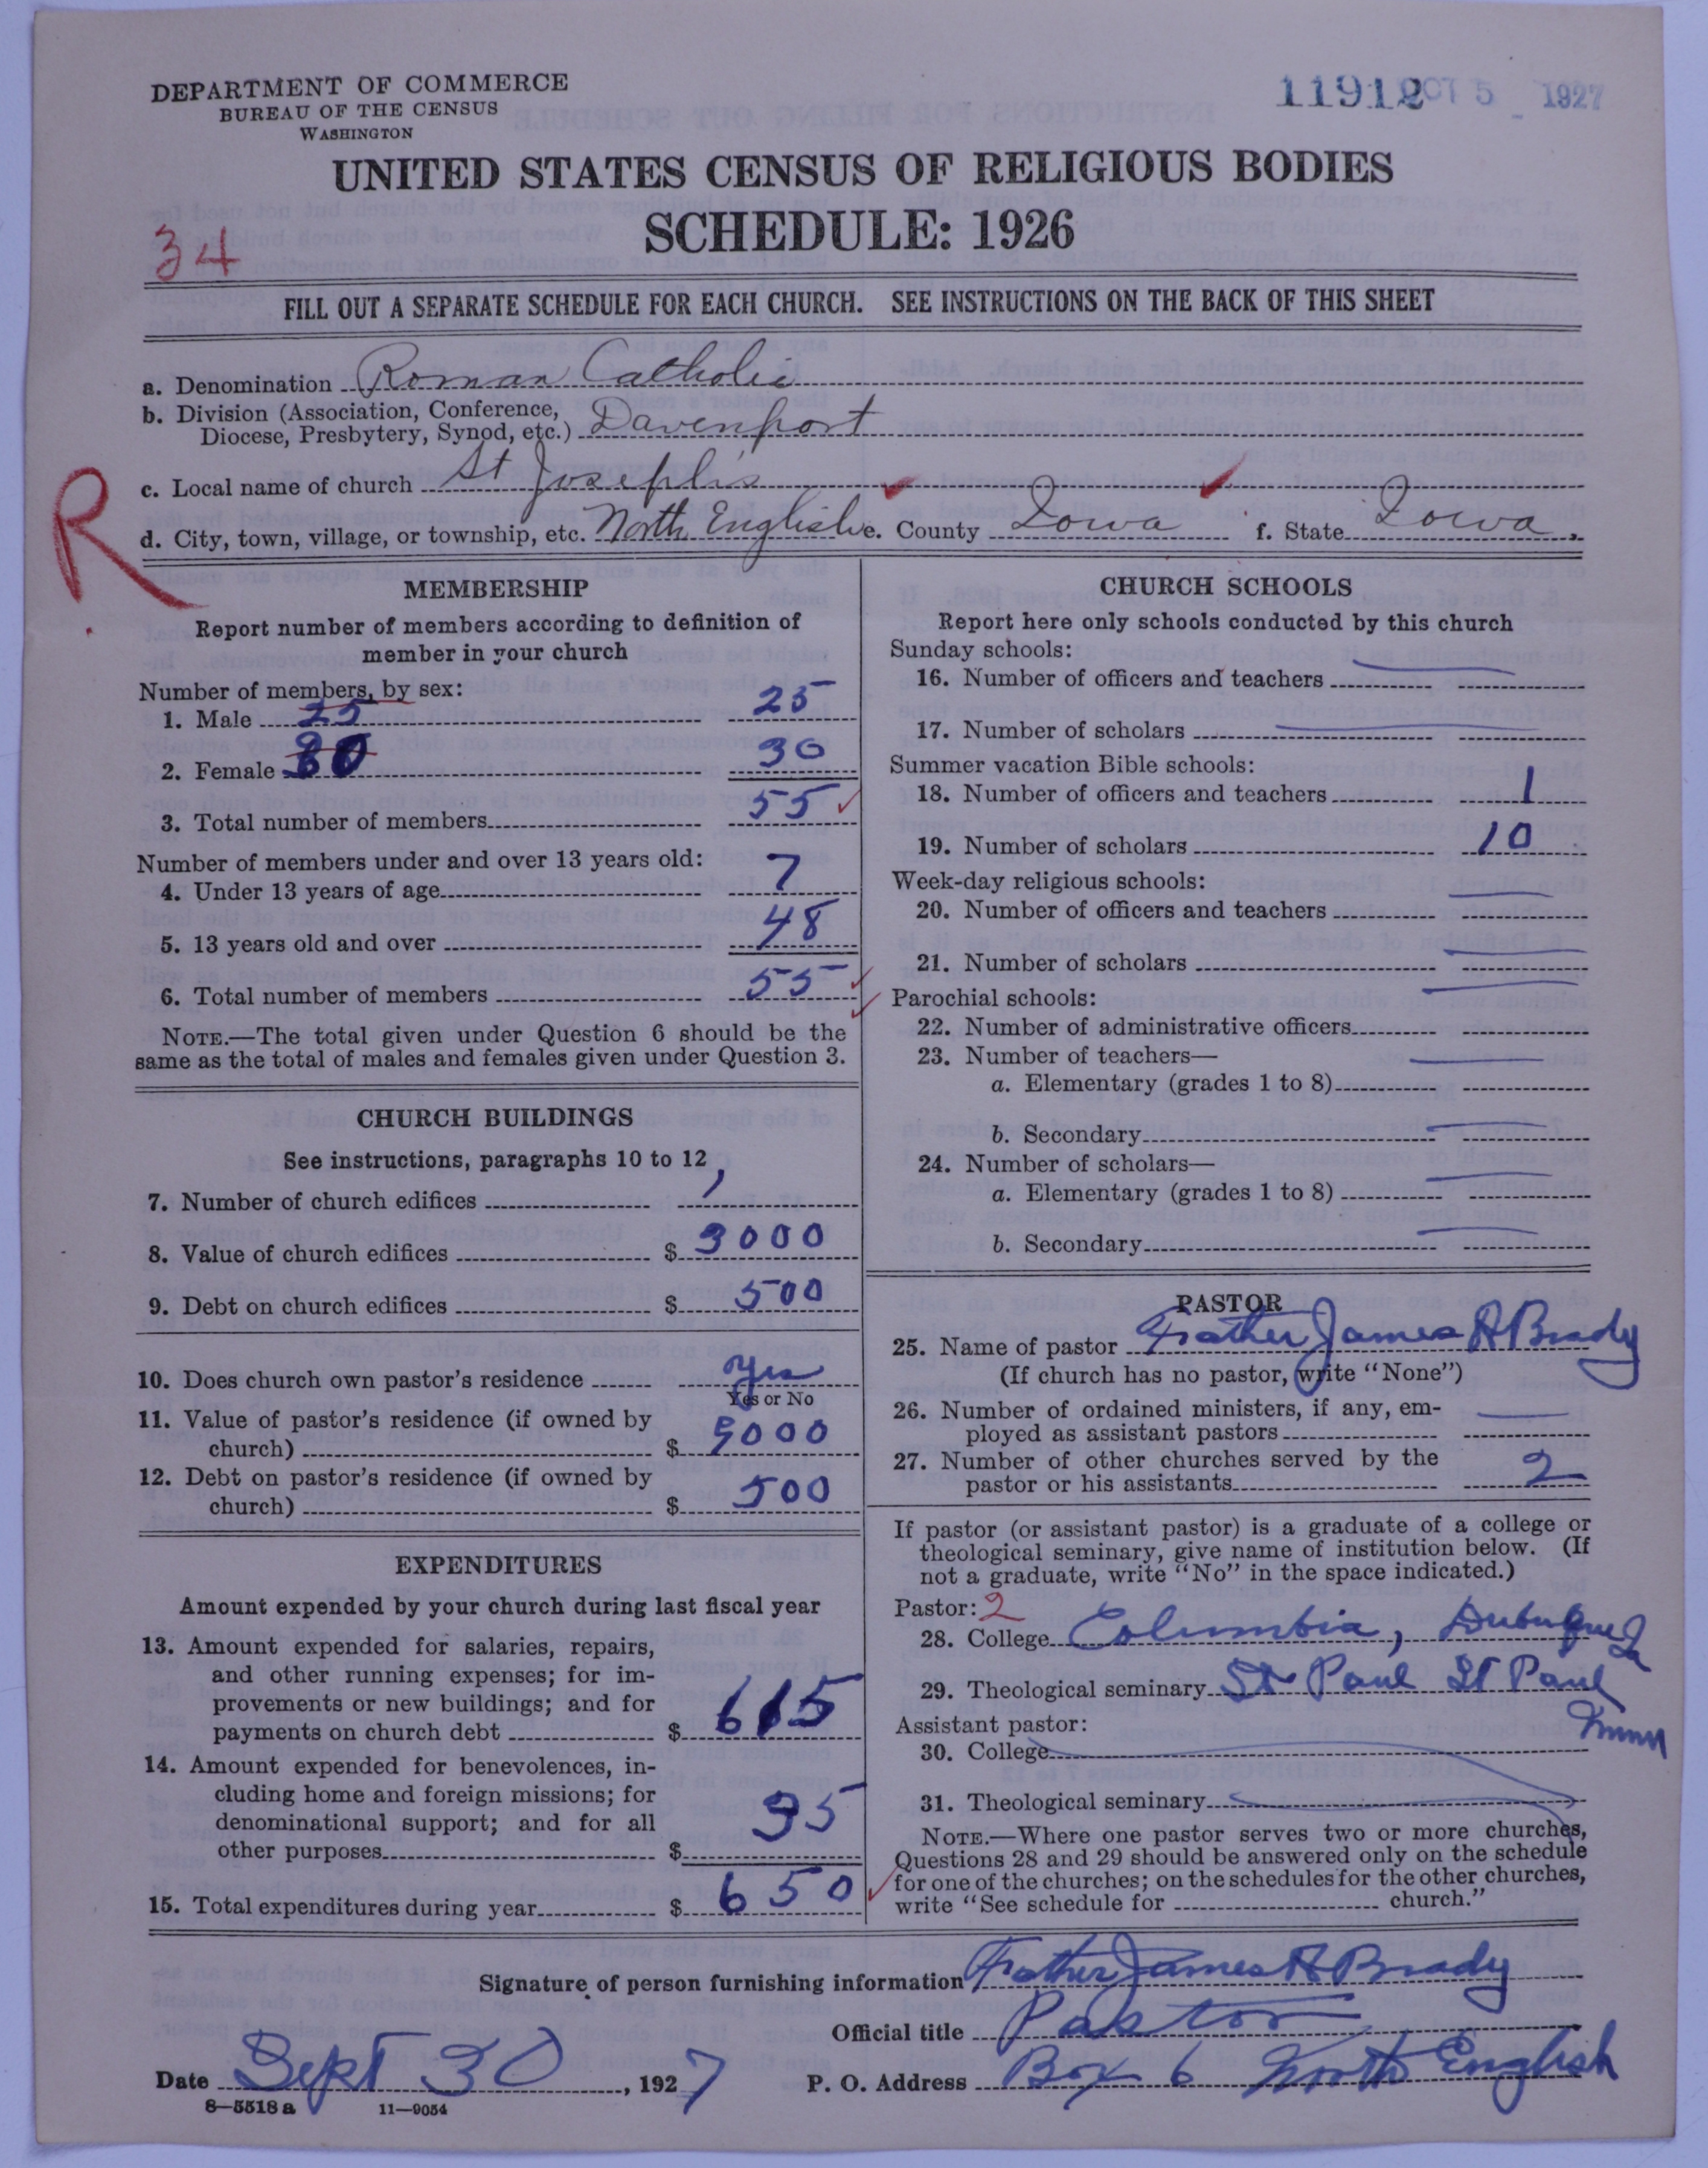 DEPARTMENT OF COMMERCE
BUREAU OF THE CENSUS
WASHINGTON
11912 OCT 5 1927
UNITED STATES CENSUS OF RELIGIOUS BODIES
SCHEDULE: 1926
34
FILL OUT A SEPARATE SCHEDULE FOR EACH CHURCH. SEE INSTRUCTIONS ON THE BACK OF THIS SHEET
a. Denomination Roman Catholic
b. Division (Association, Conference,
Diocese, Presbytery, Synod, etc.) Davenport
R
c. Local name of church St Joseph's
d. City, town, village, or township, etc. North English e. County Iowa f. State Iowa
MEMBERSHIP
Report number of members according to definition of
member in your church
Number of members, by sex:
1. Male 25 25
2. Female 30
3. Total number of members 55
Number of members under and over 13 years old:
4. Under 13 years of age 7
5. 13 years old and over 48
6. Total number of members 55
NOTE.—The total given under Question 6 should be the
same as the total of males and females given under Question 3.
CHURCH BUILDINGS
See instructions, paragraphs 10 to 12
7. Number of church edifices 1
8. Value of church edifices $ 3000
9. Debt on church edifices $ 500
10. Does church own pastor's residence Yes
Yes or No
11. Value of pastor's residence (if owned by
church) $ 5000
12. Debt on pastor's residence (if owned by
church) $ 500
EXPENDITURES
Amount expended by your church during last fiscal year
13. Amount expended for salaries, repairs,
and other running expenses; for im-
provements or new buildings; and for
payments on church debt $ 615
14. Amount expended for benevolences, in-
cluding home and foreign missions; for
denominational support; and for all
other purposes $ 35
15. Total expenditures during year $ 650
CHURCH SCHOOLS
Report here only schools conducted by this church
Sunday schools:
16. Number of officers and teachers
17. Number of scholars
Summer vacation Bible schools:
18. Number of officers and teachers 1
19. Number of scholars 10
Week-day religious schools:
20. Number of officers and teachers
21. Number of scholars
Parochial schools:
22. Number of administrative officers
23. Number of teachers—
a. Elementary (grades 1 to 8)
b. Secondary
24. Number of scholars—
a. Elementary (grades 1 to 8)
b. Secondary
PASTOR
25. Name of pastor Father James A Brady
(If church has no pastor, write "None")
26. Number of ordained ministers, if any, em-
ployed as assistant pastors
27. Number of other churches served by the
pastor or his assistants 2
If pastor (or assistant pastor) is a graduate of a college or
theological seminary, give name of institution below. (If
not a graduate, write "No" in the space indicated.)
Pastor: 2
28. College Columbia, Dubuque Ia
29. Theological seminary St Paul St Paul
Minn
Assistant pastor:
30. College
31. Theological seminary
NOTE.—Where one pastor serves two or more churches,
Questions 28 and 29 should be answered only on the schedule
for one of the churches; on the schedules for the other churches,
write "See schedule for church."
Signature of person furnishing information Father James A Brady
Official title Pastor
Date Sept 30, 1927 P. O. Address Box 6 North English
8—5518 a 11—9054